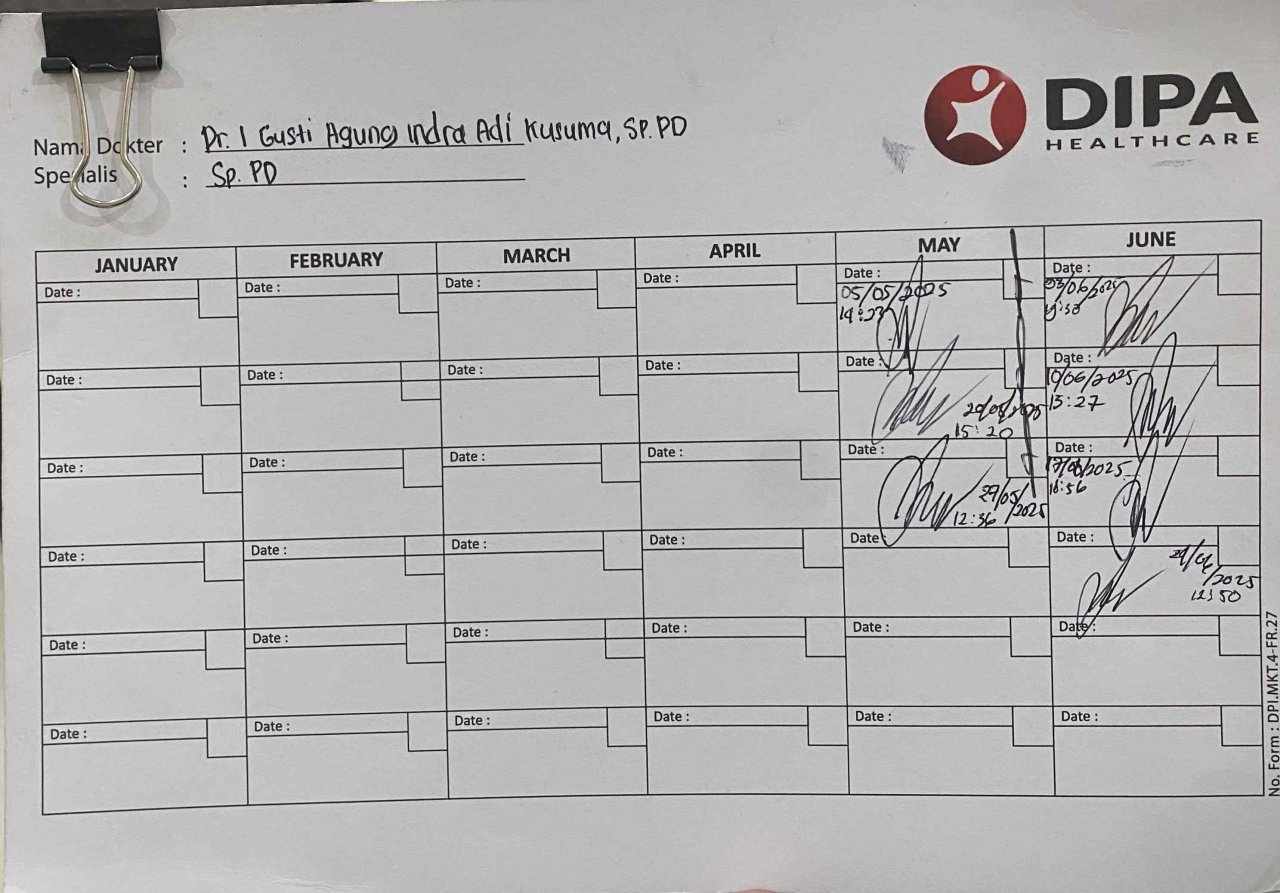 DIPA
HEALTHCARE
Nama Dokter : Dr. I Gusti Agung Indra Adi Kusuma, SP.PD
Spesialis : Sp. PD
JANUARY FEBRUARY MARCH APRIL MAY JUNE
Date : Date : Date : Date : Date : Date :
05/05/2025 03/06/2025
14:23
Date : Date : Date : Date : Date : Date :
10/06/2025
15:20 15:27
Date : Date : Date : Date : Date : Date :
27/05/2025 17/06/2025
12:36 16:56
Date : Date : Date : Date : Date : Date :
/2025
12:50
Date : Date : Date : Date : Date : Date :
Date : Date : Date : Date : Date : Date :
No. Form : DPI.MKT.4-FR.27